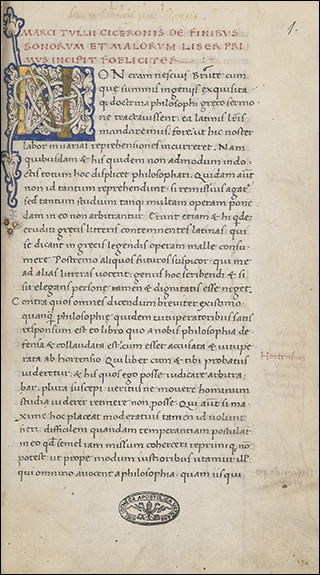 1.
MARCI TVLLII CICERONIS DE FINIBVS
BONORVM ET MALORVM LIBER PRI
MVS INCIPIT FOELICITER
NON eram nescius Brute cum
que summis ingeniis exquisita
qȝ doctrina philosophi greco sermo
ne tractavissent ea latinis litteris
mandaremus. fore ut hic noster
labor in varias reprehensiones incurreret. Nam
quibusdam & his quidem non admodum indo
ctis totum hoc displicet philosophari. Quidam aut
non id tantum reprehendunt si remissius agat
sed tantum studium tanqȝ multam operam pone
dam in eo non arbitrantur. Erunt etiam & hi qdē
eruditi grecis litteris contemnentes latinas. qui
se dicant in grecis legendis operam malle consu
mere. Postremo aliquos futuros suspicor. qui me
ad alias litteras vocent. genus hoc scribendi & si
sit elegans persone tamen & dignitatis esse neget.
Contra quos omnes dicendum breviter existimo
quanqȝ philosophie quidem vituperatoribus satis
responsum est eo libro quo a nobis philosophia de
fensa & collaudata est. cum esset accusata & vitupe
rata ab Hortensio. Qui liber cum & tibi probatus
videretur. & his quos ego posse iudicare arbitra
bar. plura suscepi veritus ne movere hominum
studia viderer retinere non posse. Qui aut si ma
xime hoc placeat moderatius tamen id volunt
fieri. difficilem quandam temperantiam postulant
in eo qd semel tam missum coherceri reprimiqȝ nō
potest. ut prope modum iustioribus utamur illis
qui omnino avocent a philosophia. quam iis qui
Hortensius